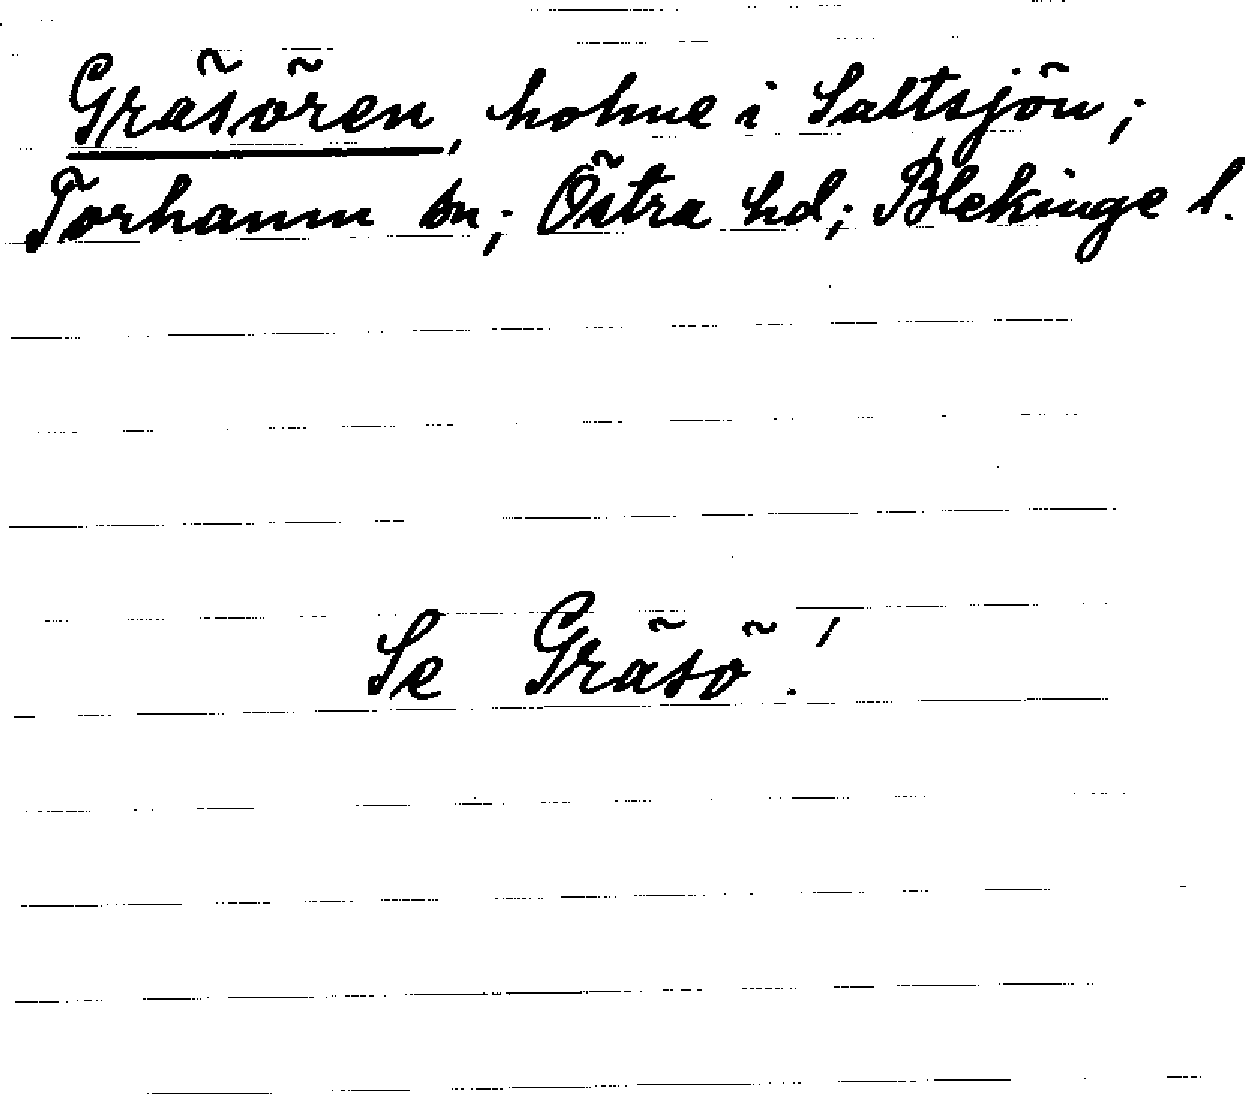 Gräsören, holme i Saltsjön;
Torhamn sn; Östra hd; Blekinge l.
Se Gräsö!